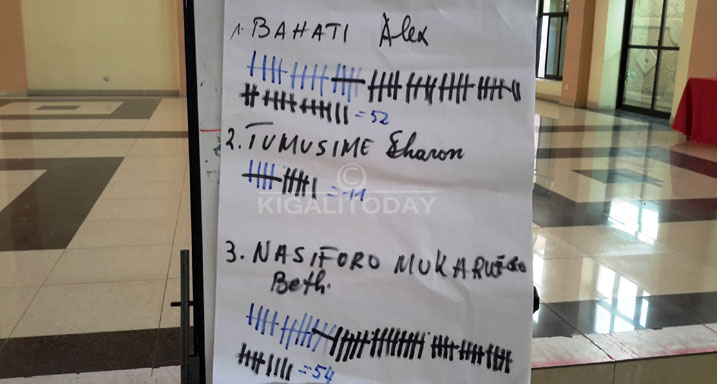 1. BAHATI Alex
= 52
2. TUMUSIME Sharon
= 11
© KIGALI TODAY
3. NASIFORO MUKARU
Beth.
= 54